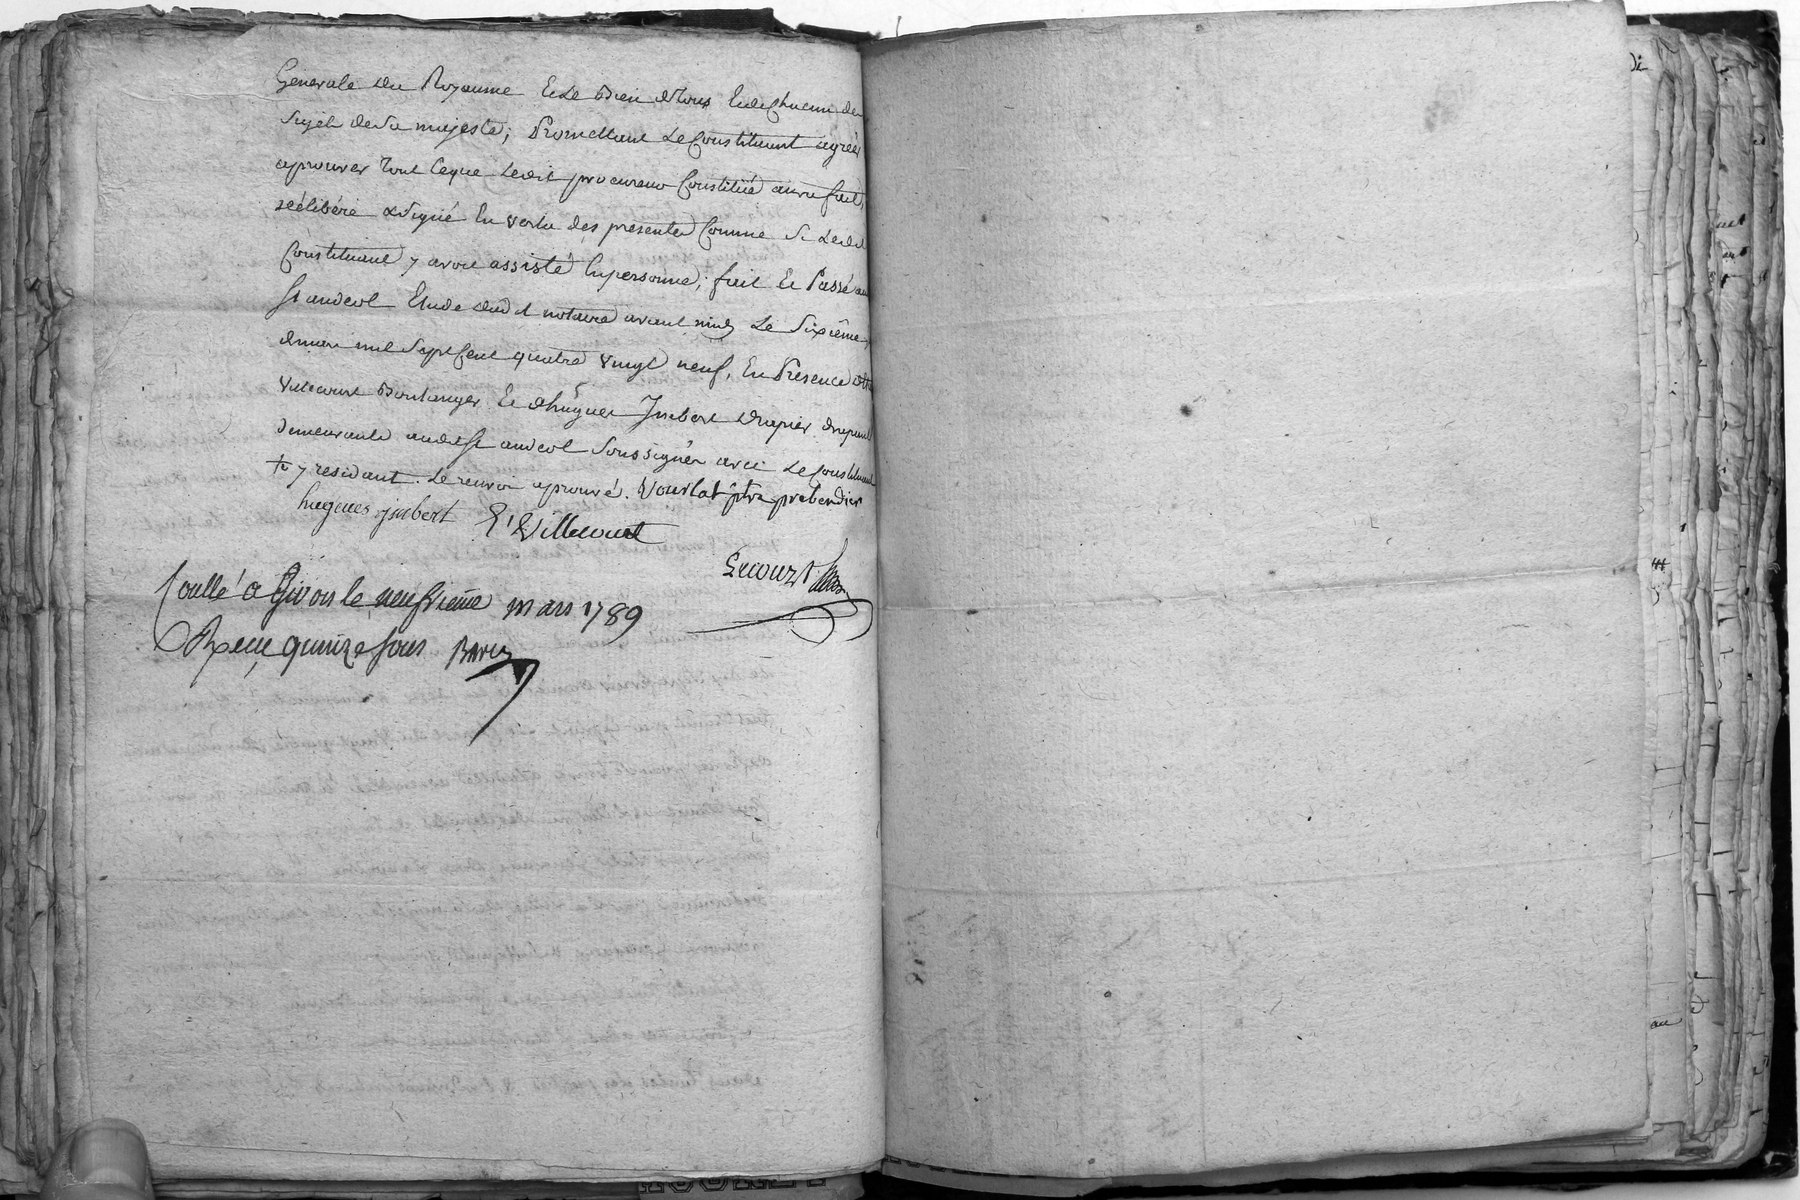 Generale du Royaume & Le Bien de tous & de chacun des
sujet de Sa majesté; Promettant Le Constituant agréer
aprouver tout ce que Ledit procureur Constitué aura fait,
délibéré & signé En vertu des presentes Comme si Ledit
Constituant y avoit assisté En personne; fait et Passé au
st andeol Etude dudit notaire avant midy Le Sixième
de mars mil sept cent quatre vingt neuf, En Presence
Villecourt Boulanger & d'hugues Imbert drapier drapant
demeurants audit st andeol soussignés avec Le Constituant
y residant. Le renvoi aprouvé. Vourlat ptre prebendier
hugues imbert Villecourt
Lecourt
Conllé a Givors le neufvieme mars 1789
Reçu quinze sous